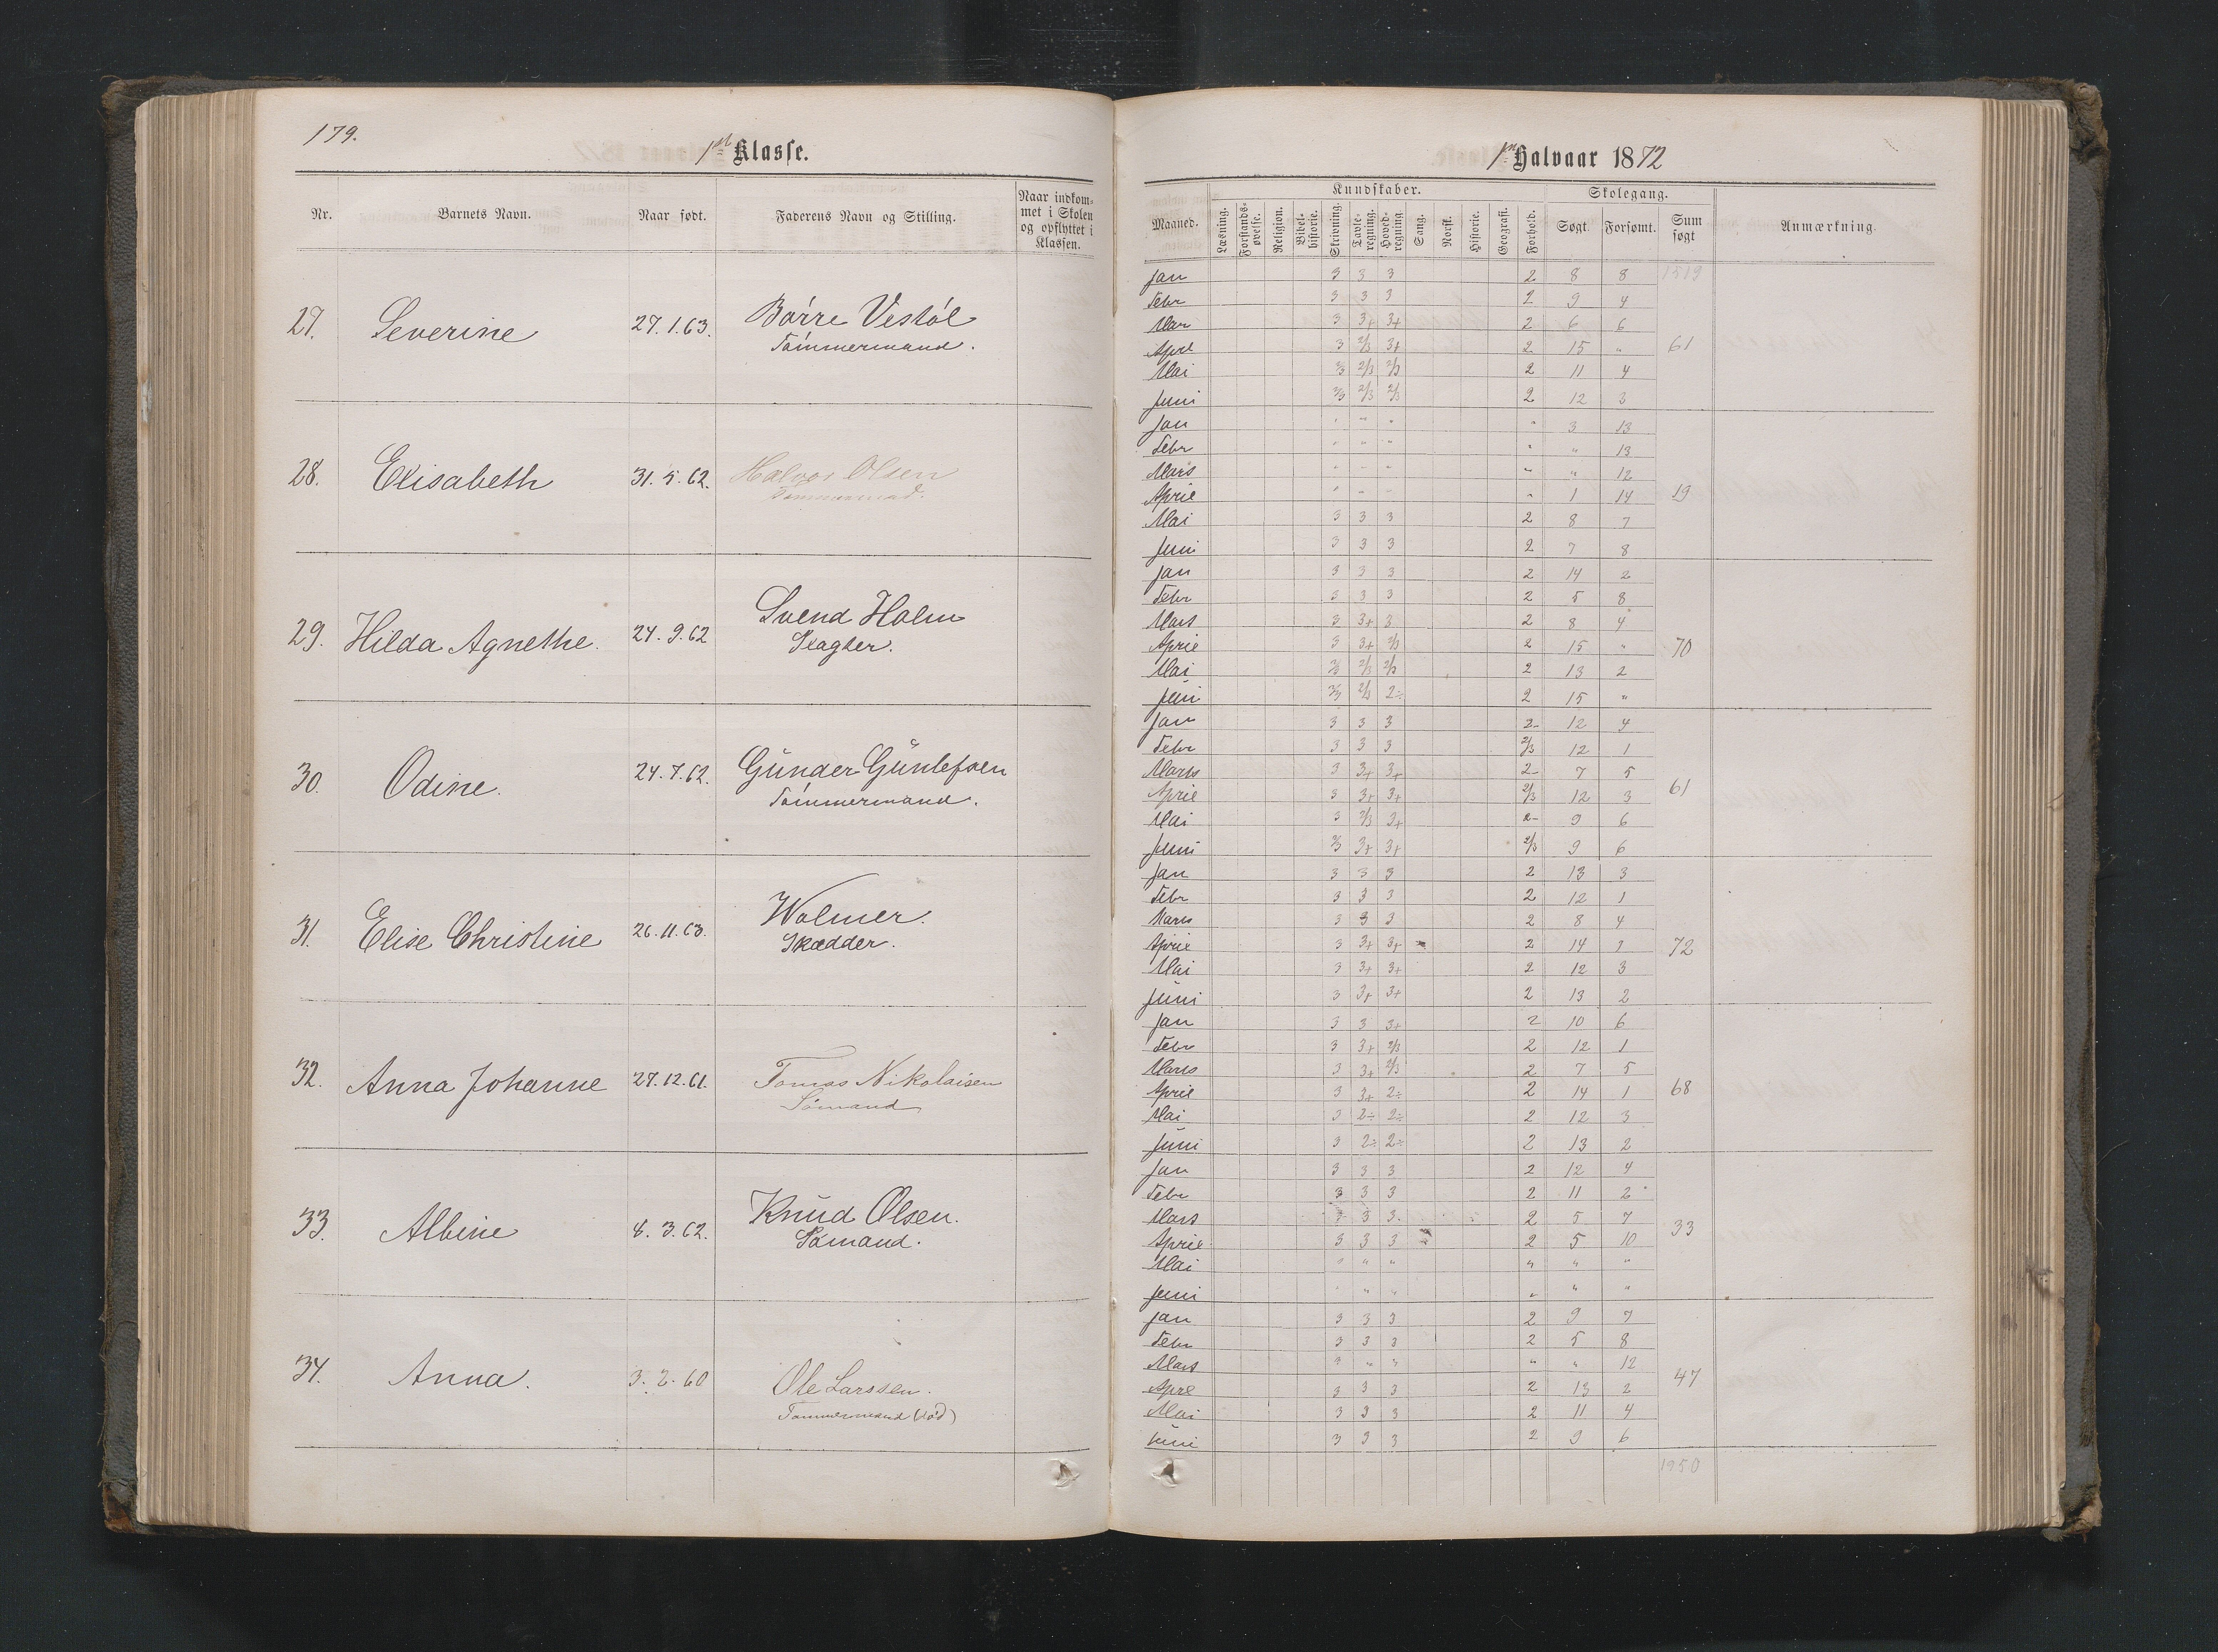 179.
1ste Klasse.
Nr. Barnets Navn. Naar født. Faderens Navn og Stilling. Naar indkommet i Skolen og opflyttet i Klassen.
27. Severine 27.1.63. Børre Vestøl
Tømmermand.
28. Elisabeth 31.5.62. Halvor Olsen
Tømmermand.
29. Hilda Agnethe. 24.9.62 Svend Holm
Slagter.
30. Odine. 24.7.62. Gunder Gunlefsen
Tømmermand.
31. Elise Christine 26.11.63. Wolmer.
Skrædder.
32. Anna Johanne 27.12.61. Tomas Nikolaisen
Sømand
33. Albine 8.3.62. Knud Olsen.
Sømand.
34. Anna. 3.2.60 Ole Larssen.
Tømmermand (død)
1ste Halvaar 1872
Kundskaber. Skolegang.
Maaned. Læsning. Forstandsøvelse. Religion. Bibelhistorie. Skrivning. Tavleregning. Hovedregning Sang. Norsk. Historie. Geografi. Forhold. Søgt. Forsømt. Sum søgt Anmærkning.
Jan 3 3 3 2 8 8 1519
Febr 3 3 3 2 9 4
Mar 3 3+ 3+ 2 6 6
Aprl 3 2/3 3+ 2 15 " 61
Mai 2/3 2/3 2/3 2 11 4
Juni 2/3 2/3 2/3 2 12 3
Jan " " " " 3 13
Febr " " " " " 13
Mars " " " " " 12
April " " " " 1 14 19
Mai 3 3 3 2 8 7
Juni 3 3 3 2 7 8
Jan 3 3 3 2 14 2
Febr 3 3 3 2 5 8
Mars 3 3+ 3 2 8 4
April 3 3+ 2/3 2 15 " 70
Mai 2/3 2/3 2/3 2 13 2
Juni 2/3 2/3 2÷ 2 15 "
Jan 3 3 3 2- 12 4
Febr 3 3 3 2/3 12 1
Mars 3 3+ 3+ 2- 7 5
April 3 3+ 3+ 2/3 12 3 61
Mai 3 2/3 3+ 2- 9 6
Juni 2/3 3+ 3+ 2/3 9 6
Jan 3 3 3 2 13 3
Febr 3 3 3 2 12 1
Mars 3 3 3 2 8 4
April 3 3+ 3+ 2 14 1 72
Mai 3 3+ 3+ 2 12 3
Juni 3 3+ 3+ 2 13 2
Jan 3 3 3+ 2 10 6
Febr 3 3+ 2/3 2 12 1
Mars 3 3+ 2/3 2 7 5
April 3 3+ 2÷ 2 14 1 68
Mai 3 2÷ 2÷ 2 12 3
Juni 3 2÷ 2÷ 2 13 2
Jan 3 3 3 2 12 4
Febr 3 3 3 2 11 2
Mars 3 3 3 2 5 7
April 3 3 3 2 5 10 33
Mai " " " " " "
Juni " " " " " "
Jan 3 3 3 2 9 7
Febr 3 3 3 2 5 8
Mars " " " " " 12
Aprl 3 3 3 2 13 2 47
Mai 3 3 3 2 11 4
Juni 3 3 3 2 9 6
1950